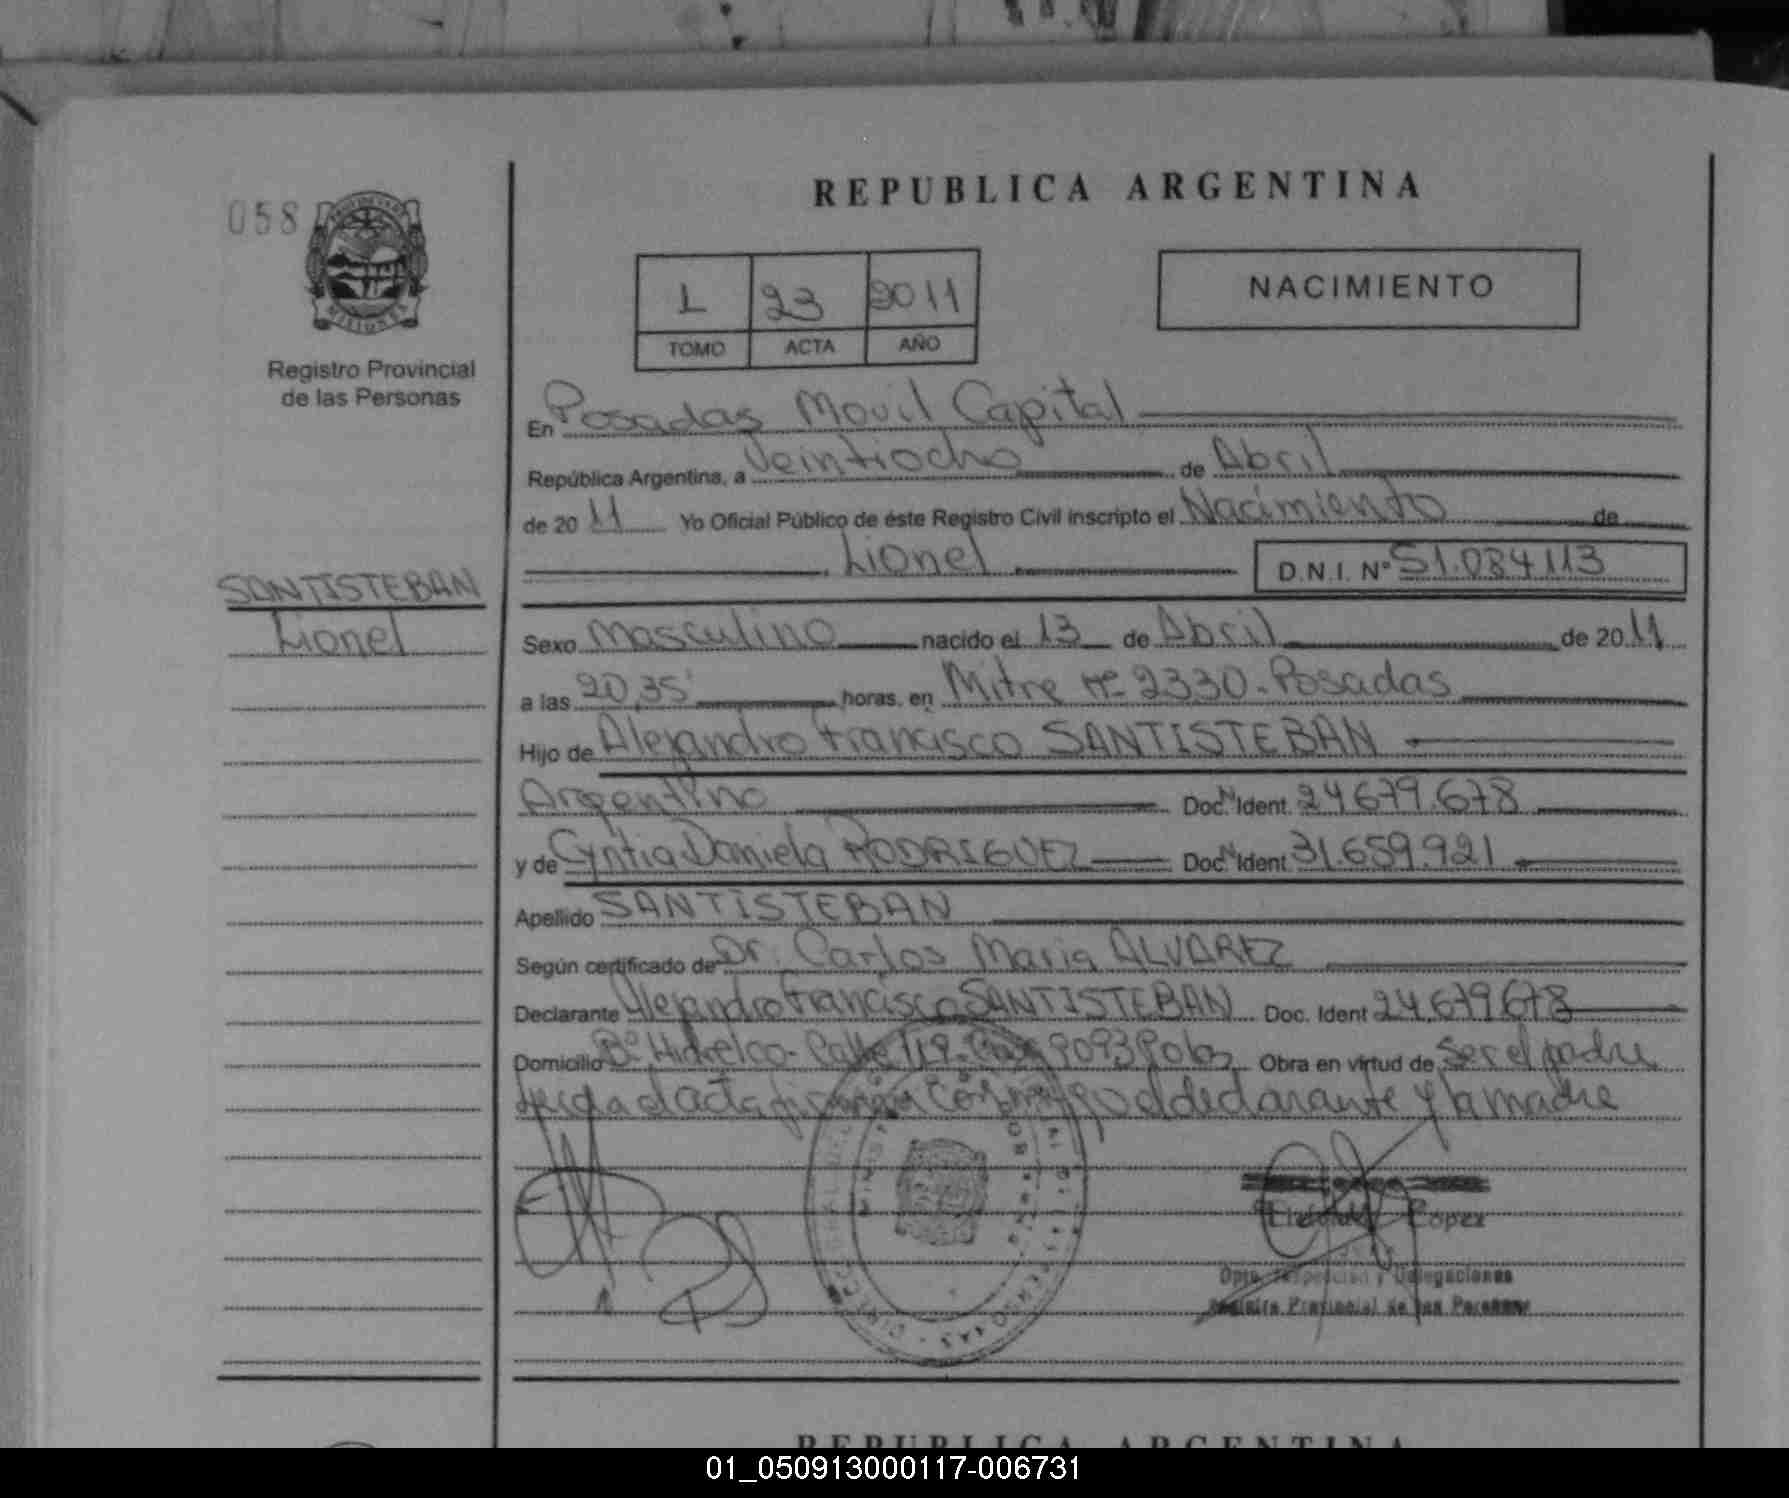 REPUBLICA ARGENTINA
058
PROVINCIA DE MISIONES
Registro Provincial
de las Personas
1 23 2011
TOMO ACTA AÑO
NACIMIENTO
En Posadas Movil Capital
República Argentina, a Veintiocho de Abril
de 20 11 Yo Oficial Público de éste Registro Civil inscripto el Nacimiento de
Lionel D.N.I. Nº 51.084113
SANTISTEBAN
Lionel
Sexo Masculino nacido el 13 de Abril de 20 11
a las 20,35' horas. en Mitre nº 2330 - Posadas
Hijo de Alejandro Francisco SANTISTEBAN
Argentino Doc. N Ident. 24.679.678
y de Cyntia Daniela RODRIGUEZ Doc. N Ident 31.659.921
Apellido SANTISTEBAN
Según certificado de Dr. Carlos Maria ALVAREZ
Declarante Alejandro Francisco SANTISTEBAN Doc. Ident 24.679.678
Domicilio Bº Hidrelco - Calle 119 - Obra en virtud de Ser el padre
Leida el acta firman Conmigo el declarante y la madre
Lopez
Dpto. Inspección y Delegaciones
Registro Provincial de las Personas
REPUBLICA ARGENTINA
01_050913000117-006731